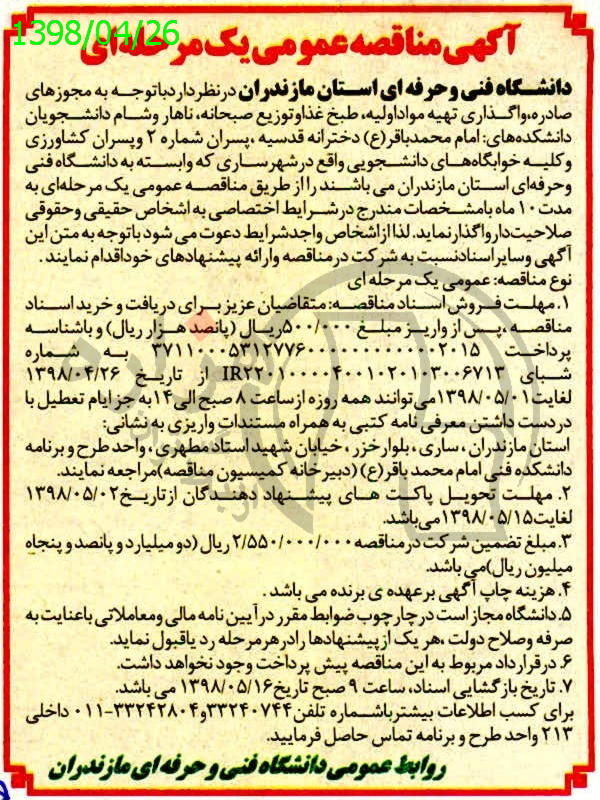 1398/04/26
آگهی مناقصه عمومی یک مرحله ای
دانشگاه فنی و حرفه ای استان مازندران در نظر دارد باتوجه به مجوزهای
صادره،واگذاری تهیه مواداولیه، طبخ غذاوتوزیع صبحانه، ناهار وشام دانشجویان
دانشکده‌های: امام محمدباقر(ع) دخترانه قدسیه ،پسران شماره ۲ وپسران کشاورزی
وکلیه خوابگاه‌های دانشجویی واقع درشهرساری که وابسته به دانشگاه فنی
وحرفه‌ای استان مازندران می باشند را از طریق مناقصه عمومی یک مرحله‌ای به
مدت ۱۰ ماه بامشخصات مندرج درشرایط اختصاصی به اشخاص حقیقی وحقوقی
صلاحیت‌دارواگذارنماید. لذا ازاشخاص واجدشرایط دعوت می شود باتوجه به متن این
آگهی وسایراسنادنسبت به شرکت درمناقصه وارائه پیشنهادهای خوداقدام نمایند .
نوع مناقصه: عمومی یک مرحله ای
۱. مهلت فروش اسناد مناقصه: متقاضیان عزیز برای دریافت و خرید اسناد
مناقصه ،پس از واریز مبلغ ۵۰۰/۰۰۰ریال (پانصد هزار ریال) و باشناسه
پرداخت به شماره
شبای IR۲۲۰۱۰۰۰۰۴۰۰۱۰۲۰۱۰۳۰۰۶۷۱۳ از تاریخ ۱۳۹۸/۰۴/۲۶
لغایت۱۳۹۸/۰۵/۰۱می‌توانند همه روزه ازساعت ۸ صبح الی۱۴به جز ایام تعطیل با
دردست داشتن معرفی نامه کتبی به همراه مستندات واریزی به نشانی:
استان مازندران ، ساری ، بلوارخزر ، خیابان شهید استاد مطهری ، واحد طرح و برنامه
دانشکده فنی امام محمد باقر(ع) (دبیرخانه کمیسیون مناقصه)مراجعه نمایند.
۲. مهلت تحویل پاکت های پیشنهاد دهندگان ازتاریخ۱۳۹۸/۰۵/۰۲
لغایت۱۳۹۸/۰۵/۱۵می‌باشد.
۳. مبلغ تضمین شرکت درمناقصه ۲/۵۵۰/۰۰۰/۰۰۰ ریال (دو میلیارد و پانصد و پنجاه
میلیون ریال)می باشد.
۴. هزینه چاپ آگهی برعهده ی برنده می باشد .
۵. دانشگاه مجاز است در چارچوب ضوابط مقرر در آیین نامه مالی ومعاملاتی باعنایت به
صرفه وصلاح دولت ،هر یک ازپیشنهادها رادرهرمرحله رد یاقبول نماید.
۶. درقرارداد مربوط به این مناقصه پیش پرداخت وجود نخواهد داشت.
۷. تاریخ بازگشایی اسناد، ساعت ۹ صبح تاریخ۱۳۹۸/۰۵/۱۶ می باشد.
برای کسب اطلاعات بیشترباشماره تلفن۳۳۲۴۰۷۴۴و۳۳۲۴۲۸۰۴-۰۱۱ داخلی
۲۱۳ واحد طرح و برنامه تماس حاصل فرمایید.
روابط عمومی دانشگاه فنی و حرفه ای مازندران